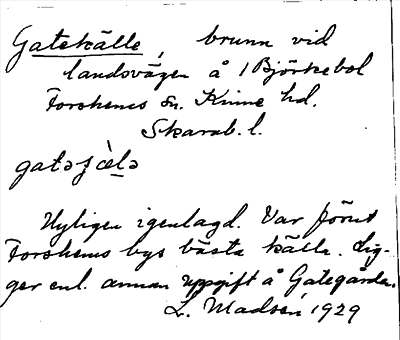 Gatekälle, brunn vid
landsvägen å 1 Björkebol
Forshems sn. Kinne hd.
Skarab. l.
gatəʃæ̀lə
Nyligen igenlagd. Var förut
Forshems bys bästa källa. Lig-
ger enl. annan uppgift å Gategården.
L. Madsén 1929